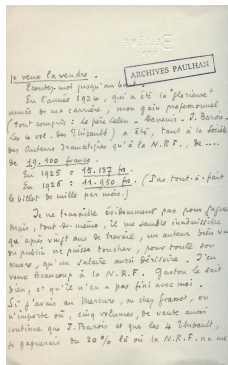 je veux la vendre.
ARCHIVES PAULHAN
Ecoutez-moi jusqu'au bout.
En l'année 1924, qui a été la "glorieuse"
année de ma carrière, mon gain professionnel
(tout compris : Le père Leleu - Devenir - J. Barois -
Les 4 vol. des Thibault) a été, tant à la Société
des Auteurs Dramatiques qu'à la N.R.F., de ....
de 19.100 francs.
En 1925 : 15.137 fr.
En 1926 : 11.950 fr. (Pas tout-à-fait
le billet de mille par mois.)
Je ne travaille évidemment pas pour gagner
Mais, tout de même, il me semble inadmissible
qu'après vingt ans de travail, un auteur bien vu
du public ne puisse toucher, pour toute son
œuvre, qu'un salaire aussi dérisoire. J'en
veux beaucoup à la N.R.F. Gaston le sait
bien, et qu'il n'en a pas fini avec moi.
Si j'avais au Mercure, ou chez Grasset, ou
n'importe où, cinq volumes, de vente aussi
continue que J. Barois et que les 4 Thibault,
je gagnerais du 20% là où la N.R.F. ne me